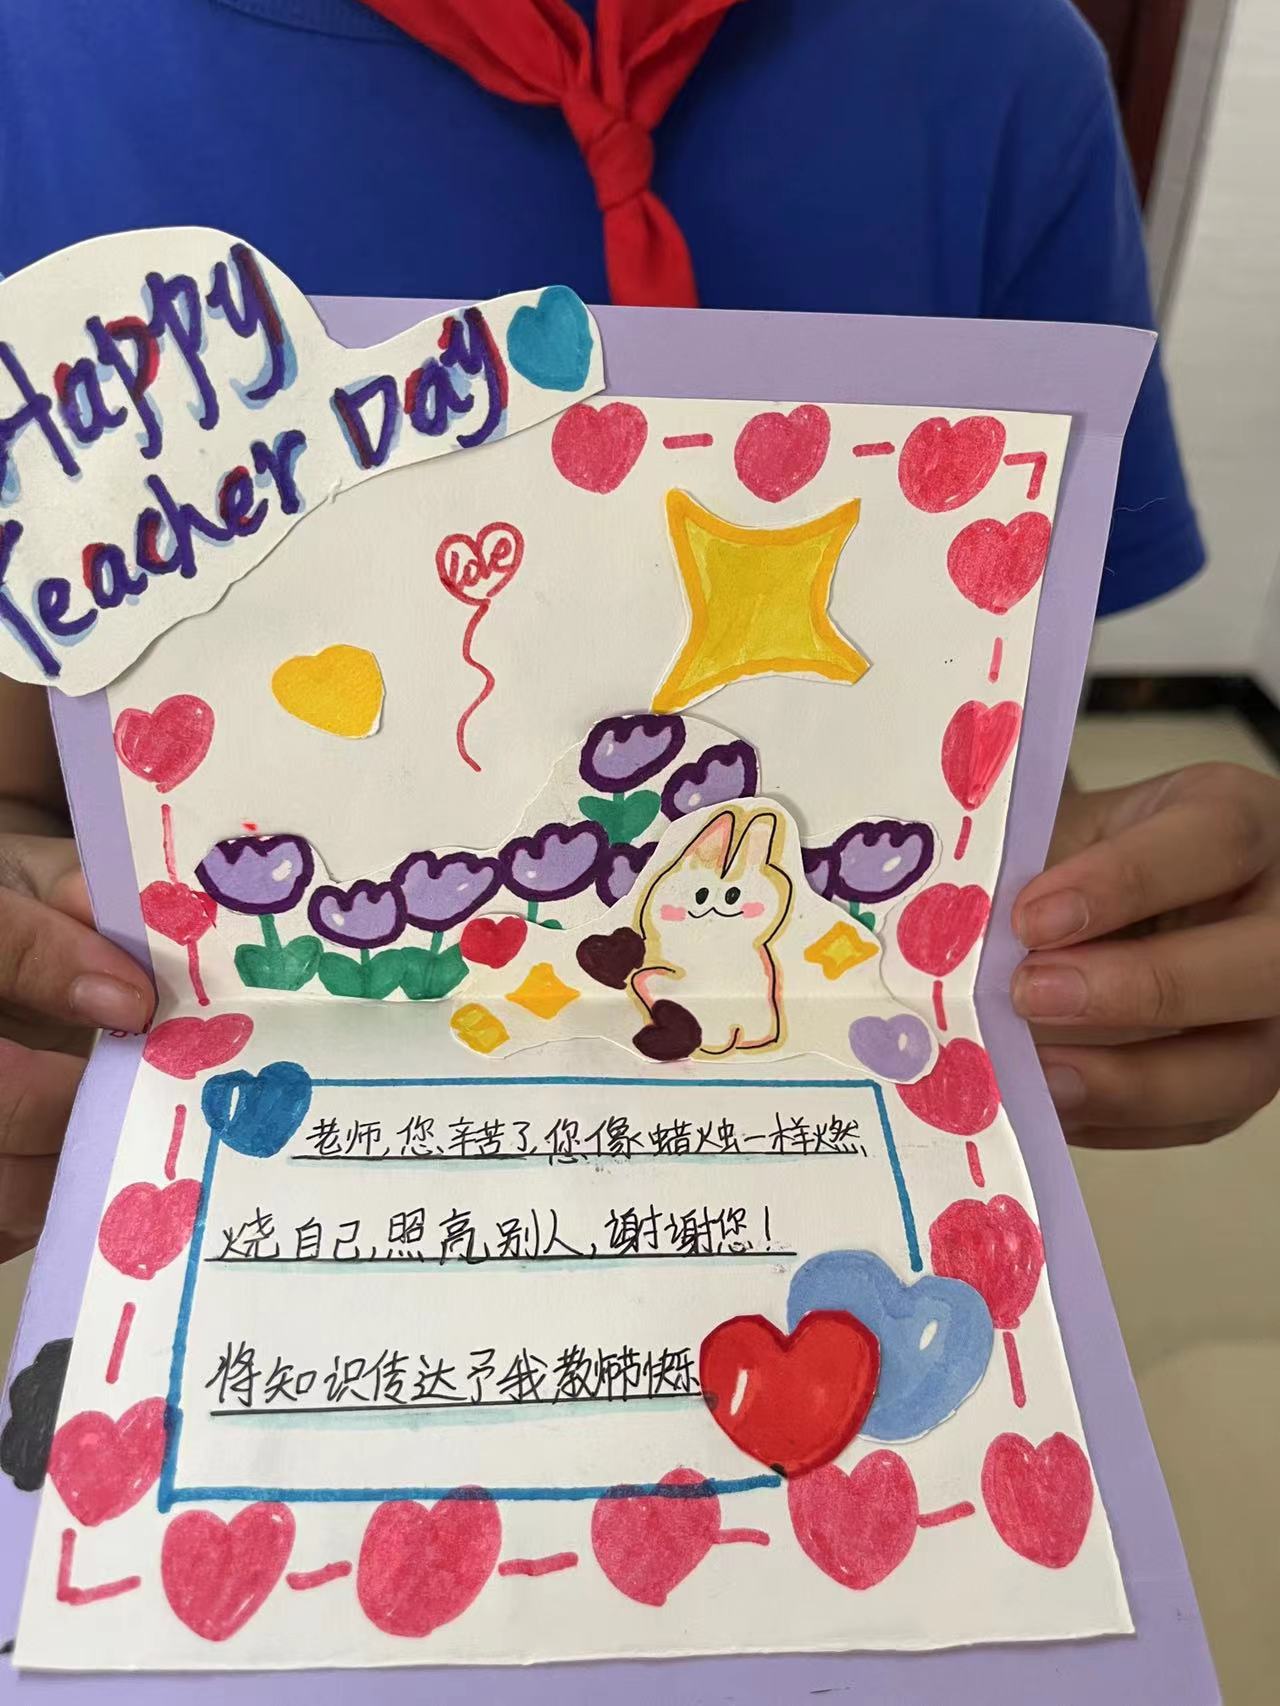 Happy
Teacher Day
love
老师,您辛苦了,您像蜡烛一样燃
烧自己,照亮别人,谢谢您!
将知识传达予我教师节快乐